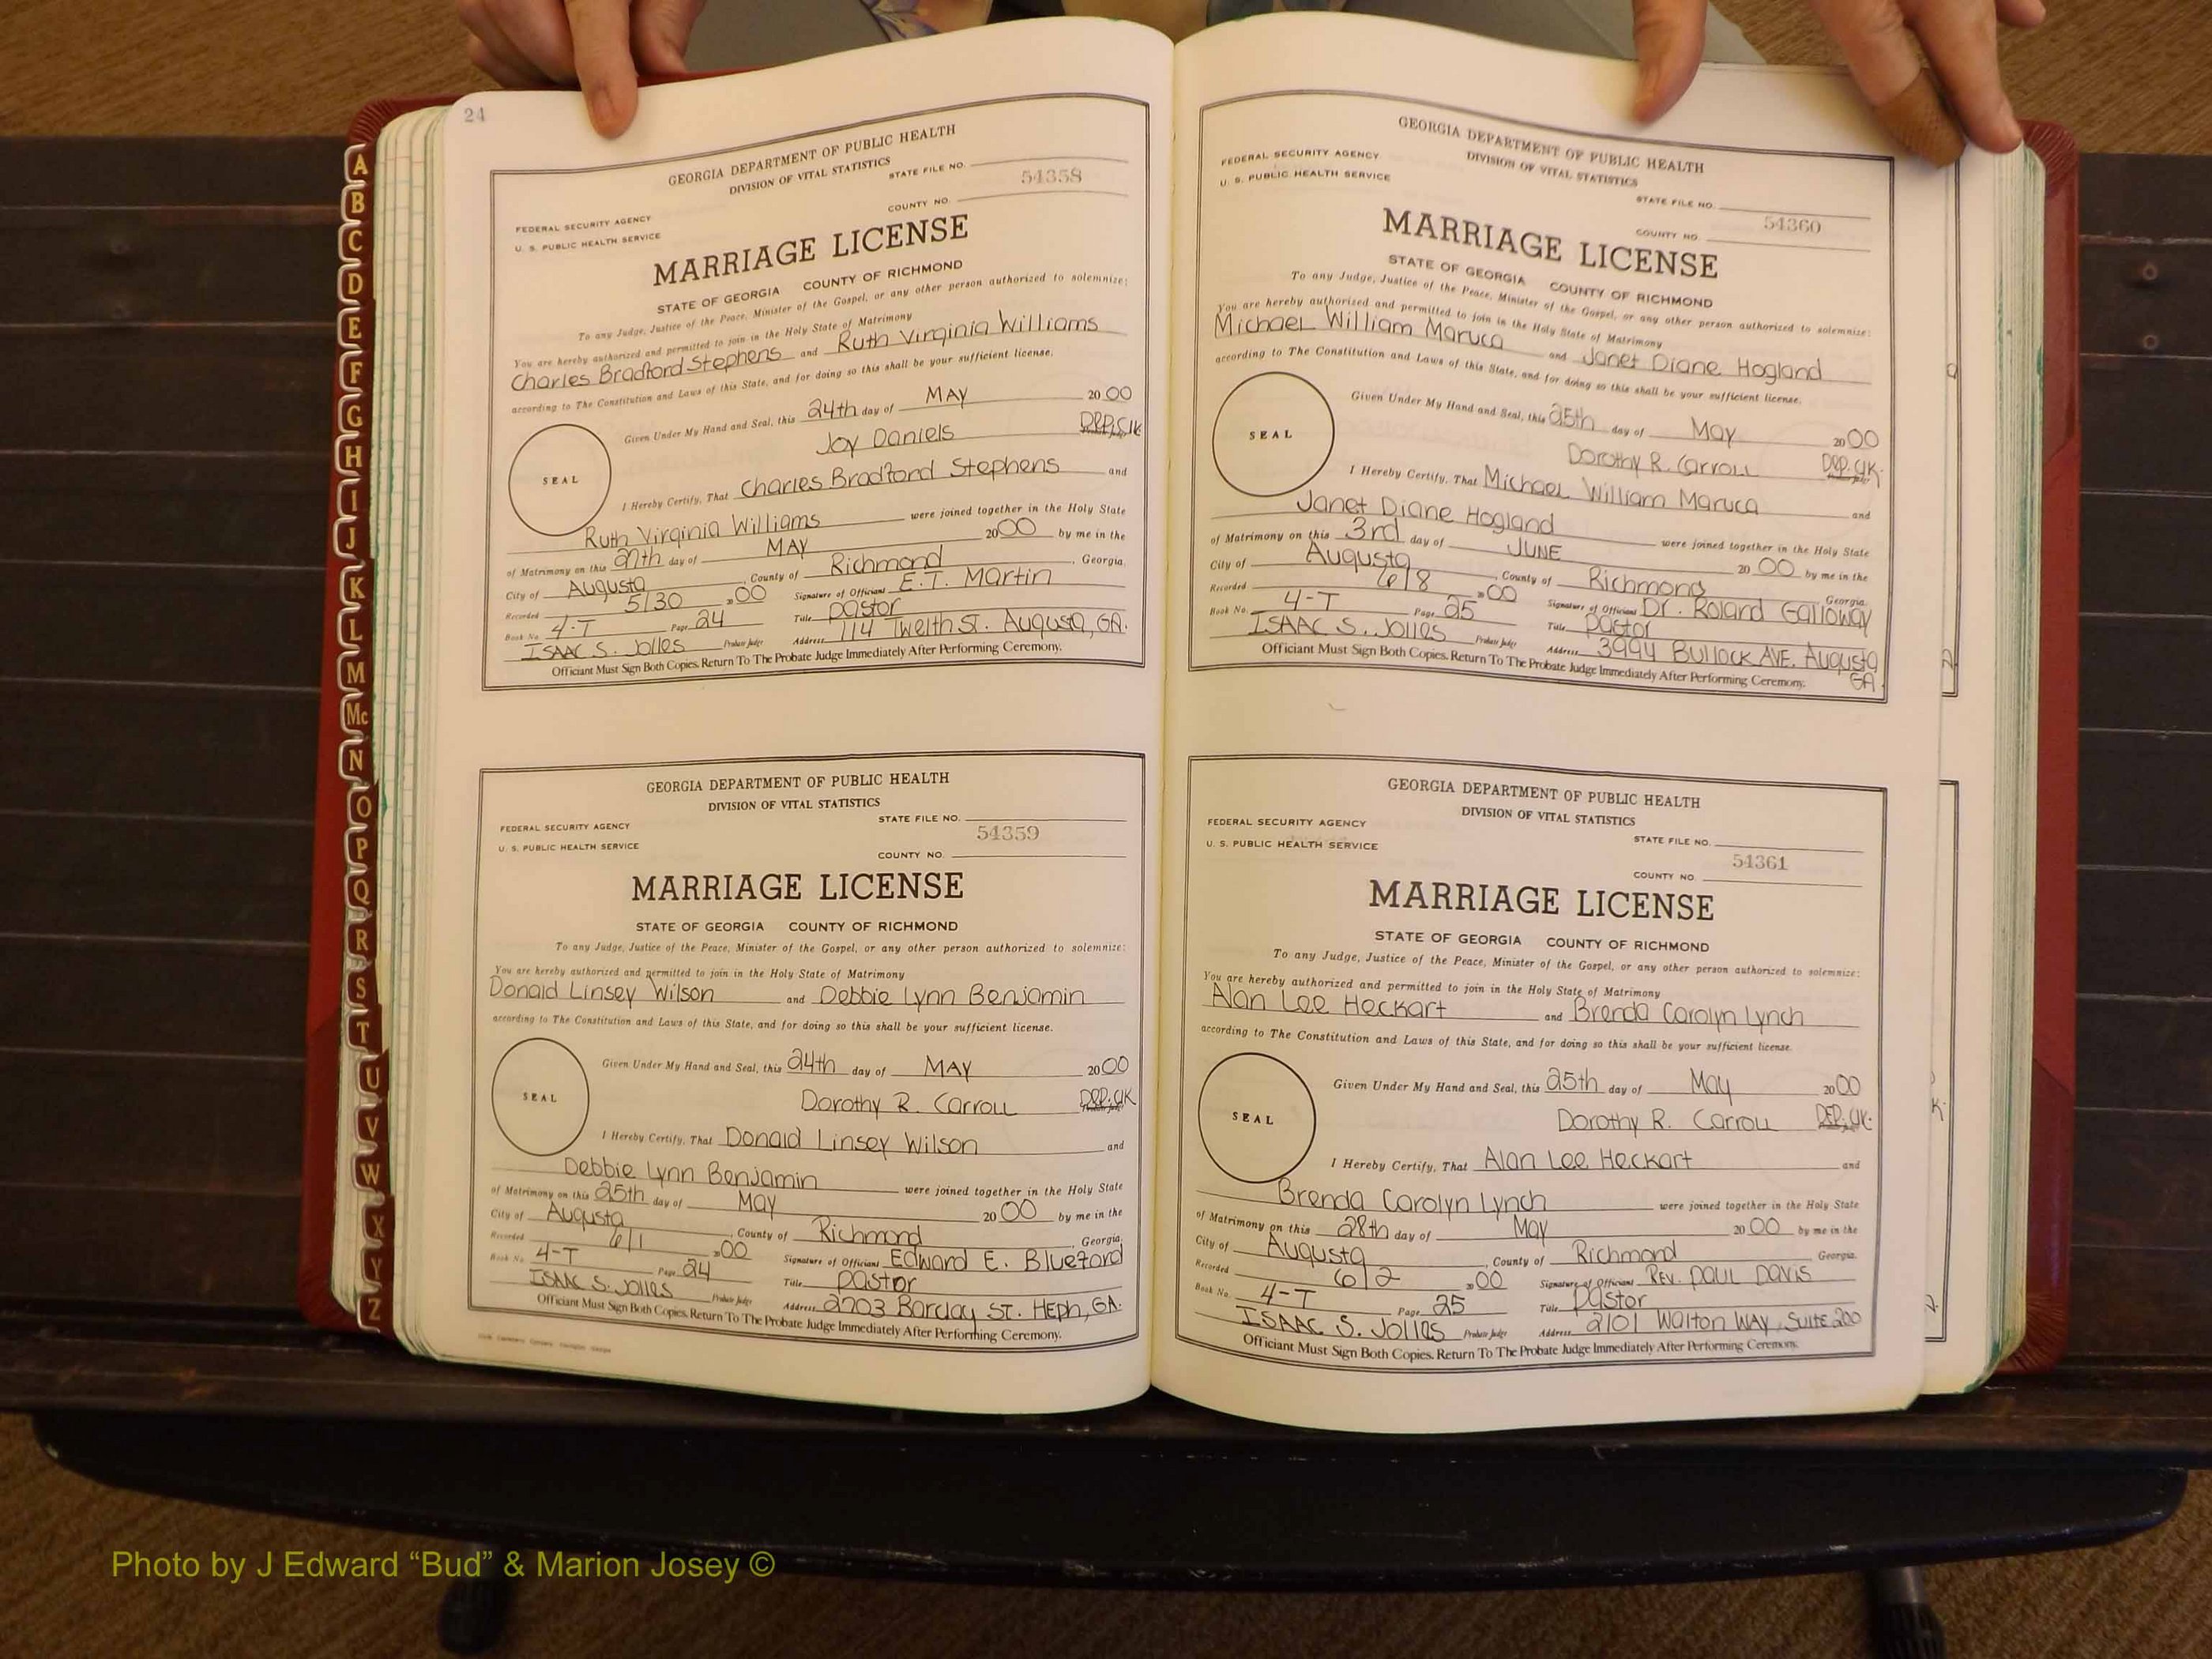 24
GEORGIA DEPARTMENT OF PUBLIC HEALTH
DIVISION OF VITAL STATISTICS
STATE FILE NO.
54358
COUNTY NO.
FEDERAL SECURITY AGENCY
U. S. PUBLIC HEALTH SERVICE
MARRIAGE LICENSE
STATE OF GEORGIA COUNTY OF RICHMOND
To any Judge, Justice of the Peace, Minister of the Gospel, or any other person authorized to solemnize:
You are hereby authorized and permitted to join in the Holy State of Matrimony
Charles Bradford Stephens and Ruth Virginia Williams
according to The Constitution and Laws of this State, and for doing so this shall be your sufficient license.
Given Under My Hand and Seal, this 24th day of MAY 2000
Joy Daniels Dep. Clk
SEAL
I Hereby Certify, That Charles Bradford Stephens and
Ruth Virginia Williams were joined together in the Holy State
of Matrimony on this 27th day of MAY 2000 by me in the
City of Augusta, County of Richmond, Georgia.
Recorded 5/30 2000 Signature of Officiant E.T. Martin
Book No. 4-T Page 24 Title Pastor
ISAAC S. Jolles Probate Judge Address 114 Twelth St. Augusta, GA.
Officiant Must Sign Both Copies. Return To The Probate Judge Immediately After Performing Ceremony.
GEORGIA DEPARTMENT OF PUBLIC HEALTH
DIVISION OF VITAL STATISTICS
STATE FILE NO.
54359
COUNTY NO.
FEDERAL SECURITY AGENCY
U. S. PUBLIC HEALTH SERVICE
MARRIAGE LICENSE
STATE OF GEORGIA COUNTY OF RICHMOND
To any Judge, Justice of the Peace, Minister of the Gospel, or any other person authorized to solemnize:
You are hereby authorized and permitted to join in the Holy State of Matrimony
Donald Linsey Wilson and Debbie Lynn Benjamin
according to The Constitution and Laws of this State, and for doing so this shall be your sufficient license.
Given Under My Hand and Seal, this 24th day of MAY 2000
Dorothy R. Carroll Dep. Clk
SEAL
I Hereby Certify, That Donald Linsey Wilson and
Debbie Lynn Benjamin were joined together in the Holy State
of Matrimony on this 25th day of May 2000 by me in the
City of Augusta, County of Richmond, Georgia.
Recorded 6/1 2000 Signature of Officiant Edward E. Blueford
Book No. 4-T Page 24 Title Pastor
ISAAC S. Jolles Probate Judge Address 2703 Barclay ST. Heph, GA.
Officiant Must Sign Both Copies. Return To The Probate Judge Immediately After Performing Ceremony.
GEORGIA DEPARTMENT OF PUBLIC HEALTH
DIVISION OF VITAL STATISTICS
FEDERAL SECURITY AGENCY
U. S. PUBLIC HEALTH SERVICE
STATE FILE NO.
54360
COUNTY NO.
MARRIAGE LICENSE
STATE OF GEORGIA COUNTY OF RICHMOND
To any Judge, Justice of the Peace, Minister of the Gospel, or any other person authorized to solemnize:
You are hereby authorized and permitted to join in the Holy State of Matrimony
Michael William Maruca and Janet Diane Hogland
according to The Constitution and Laws of this State, and for doing so this shall be your sufficient license.
Given Under My Hand and Seal, this 25th day of May 2000
Dorothy R. Carroll Dep. Clk.
SEAL
I Hereby Certify, That Michael William Maruca and
Janet Diane Hogland were joined together in the Holy State
of Matrimony on this 3rd day of JUNE 2000 by me in the
City of Augusta, County of Richmond Georgia.
Recorded 6/8 2000 Signature of Officiant Dr. Roland Galloway
Book No. 4-T Page 25 Title Pastor
ISAAC S. Jolles Probate Judge Address 3994 Bullock AVE. Augusta
GA.
Officiant Must Sign Both Copies. Return To The Probate Judge Immediately After Performing Ceremony.
GEORGIA DEPARTMENT OF PUBLIC HEALTH
DIVISION OF VITAL STATISTICS
FEDERAL SECURITY AGENCY
U. S. PUBLIC HEALTH SERVICE
STATE FILE NO.
54361
COUNTY NO.
MARRIAGE LICENSE
STATE OF GEORGIA COUNTY OF RICHMOND
To any Judge, Justice of the Peace, Minister of the Gospel, or any other person authorized to solemnize:
You are hereby authorized and permitted to join in the Holy State of Matrimony
Alan Lee Heckart and Brenda Carolyn Lynch
according to The Constitution and Laws of this State, and for doing so this shall be your sufficient license.
Given Under My Hand and Seal, this 25th day of May 2000
Dorothy R. Carroll Dep. Clk.
SEAL
I Hereby Certify, That Alan Lee Heckart and
Brenda Carolyn Lynch were joined together in the Holy State
of Matrimony on this 28th day of May 2000 by me in the
City of Augusta, County of Richmond Georgia.
Recorded 6/2 2000 Signature of Officiant Rev. Paul Davis
Book No. 4-T Page 25 Title Pastor
ISAAC S. Jolles Probate Judge Address 2101 Walton Way, Suite 200
Officiant Must Sign Both Copies. Return To The Probate Judge Immediately After Performing Ceremony.
A
B
C
D
E
F
G
H
I
J
K
L
M
Mc
N
O
P
Q
R
S
T
U
V
W
X
Y
Z
Photo by J Edward “Bud” & Marion Josey ©